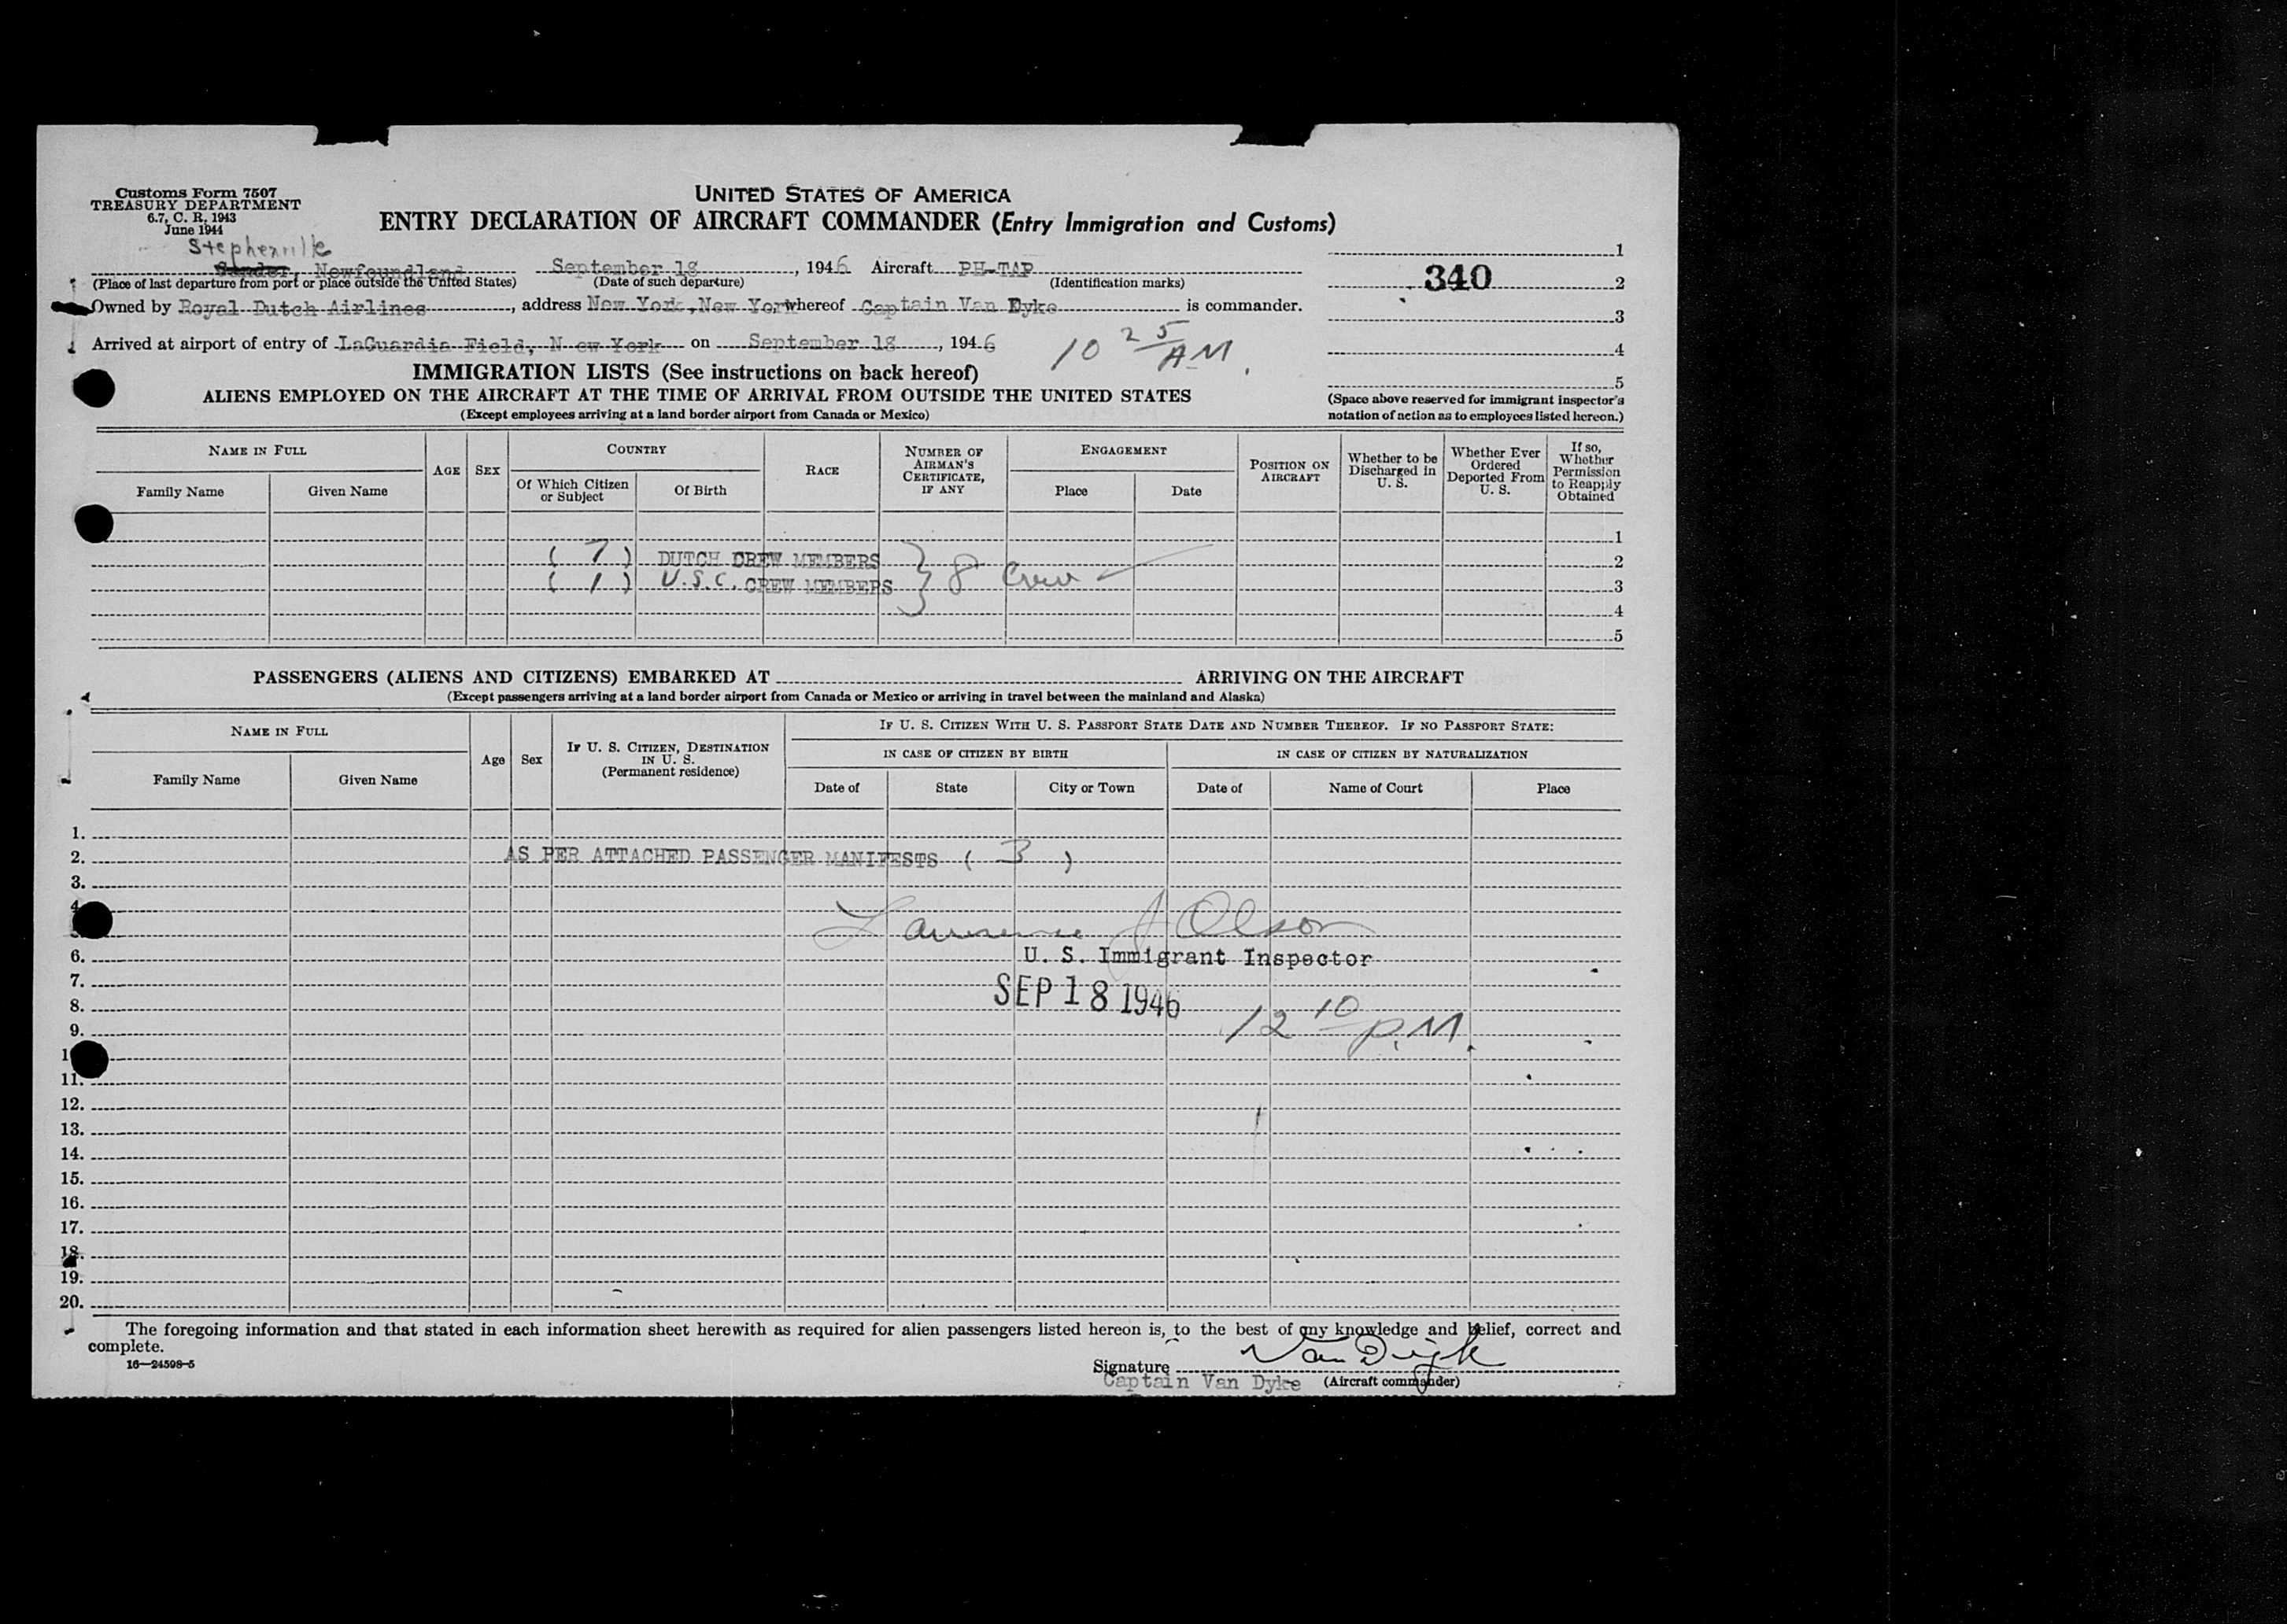 Customs Form 7507
TREASURY DEPARTMENT
6.7, C. R. 1943
June 1944
UNITED STATES OF AMERICA
ENTRY DECLARATION OF AIRCRAFT COMMANDER (Entry Immigration and Customs)
Stephenville
Gander, Newfoundland September 18, 1946 Aircraft PH-TAP
(Place of last departure from port or place outside the United States) (Date of such departure) (Identification marks)
Owned by Royal Dutch Airlines, address New York, New York whereof Captain Van Dyke is commander.
Arrived at airport of entry of LaGuardia Field, N ew York on September 18, 1946 10 25 AM
1
340 2
3
4
5
(Space above reserved for immigrant inspector's notation of action as to employees listed hereon.)
IMMIGRATION LISTS (See instructions on back hereof)
ALIENS EMPLOYED ON THE AIRCRAFT AT THE TIME OF ARRIVAL FROM OUTSIDE THE UNITED STATES
(Except employees arriving at a land border airport from Canada or Mexico)
NAME IN FULL
Family Name Given Name
AGE SEX
COUNTRY
Of Which Citizen or Subject Of Birth
RACE
NUMBER OF AIRMAN'S CERTIFICATE, IF ANY
ENGAGEMENT
Place Date
POSITION ON AIRCRAFT
Whether to be Discharged in U. S.
Whether Ever Ordered Deported From U. S.
If so, Whether Permission to Reapply Obtained
1
( 7 ) DUTCH CREW MEMBERS 2
( 1 ) U.S.C. CREW MEMBERS } 8 Crew 3
4
5
PASSENGERS (ALIENS AND CITIZENS) EMBARKED AT ARRIVING ON THE AIRCRAFT
(Except passengers arriving at a land border airport from Canada or Mexico or arriving in travel between the mainland and Alaska)
NAME IN FULL
Family Name Given Name
Age Sex
IF U. S. CITIZEN, DESTINATION IN U. S.
(Permanent residence)
IF U. S. CITIZEN WITH U. S. PASSPORT STATE DATE AND NUMBER THEREOF. IF NO PASSPORT STATE:
IN CASE OF CITIZEN BY BIRTH IN CASE OF CITIZEN BY NATURALIZATION
Date of State City or Town Date of Name of Court Place
1.
2. AS PER ATTACHED PASSENGER MANIFESTS ( 3 )
3.
4
Lawrence J Olson
6. U. S. Immigrant Inspector
7.
8. SEP 18 1946
9. 12 10 P.M.
1
11.
12.
13.
14.
15.
16.
17.
18.
19.
20.
The foregoing information and that stated in each information sheet herewith as required for alien passengers listed hereon is, to the best of my knowledge and belief, correct and
complete.
16—24598-5
Signature Van Dijk
Captain Van Dyke (Aircraft commander)